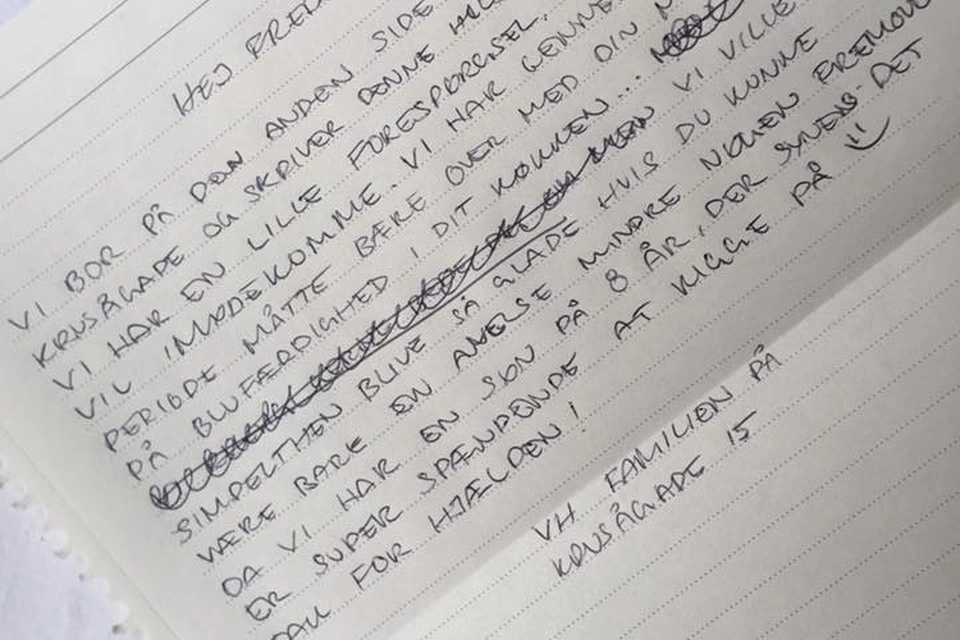 HEJ
VI BOR PÅ DEN ANDEN SIDE
KRUSÅGADE OG SKRIVER DENNE
VI HAR EN LILLE FORESPØRGSEL.
VIL IMØDEKOMME. VI HAR GENNE
PERIODE MÅTTE BÆRE OVER MED DIN
PÅ BLUFÆRDIGHED I DIT KØKKEN...
MEN VI VILLE
SIMPELTHEN BLIVE SÅ GLADE HVIS DU KUNNE
VÆRE BARE EN ANELSE MINDRE NØGEN FREMOV
DA VI HAR EN SØN PÅ 8 ÅR, DER SYNES DET
ER SUPER SPÆNDENDE AT KIGGE PÅ
TAK FOR HJÆLPEN!
VH FAMILIEN PÅ
KRUSÅGADE 15